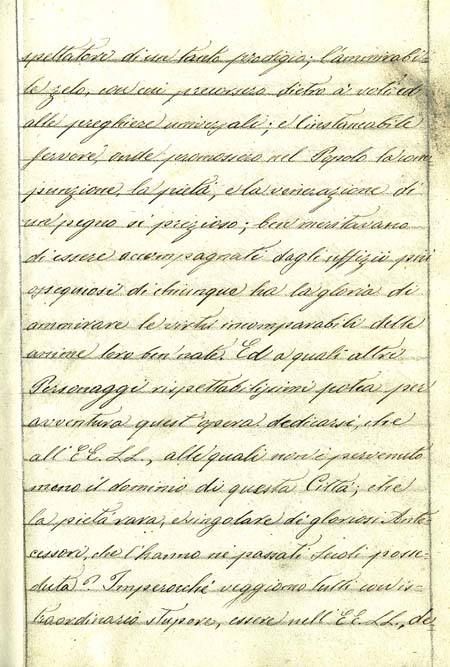 spettatori di un tanto prodigio; l'ammirabi-
le zelo, con cui precorsero dietro a' voti ed
alle preghiere universali; e l'instancabile
fervore, onde promossero nel Popolo la com
punzione, la pietà, e la venerazione di
un pegno sì prezioso; ben meritavano
di essere accompagnati dagli uffizii più
ossequiosi di chiunque ha la gloria di
ammirare le virtù incomparabili delle
anime loro ben nate. Ed a quali altri
Personaggi rispettabilissimi potea per
avventura quest'opera dedicarsi, che
all'EE. LL., alle quali non è pervenuto
meno il dominio di questa Città; che
la pietà rara, e singolare di gloriosi Ante
cessori, che l'hanno ne' passati Secoli posse-
duta? Imperocchè veggiono tutti con is-
traordinario stupore, essere nell'EE. LL., de